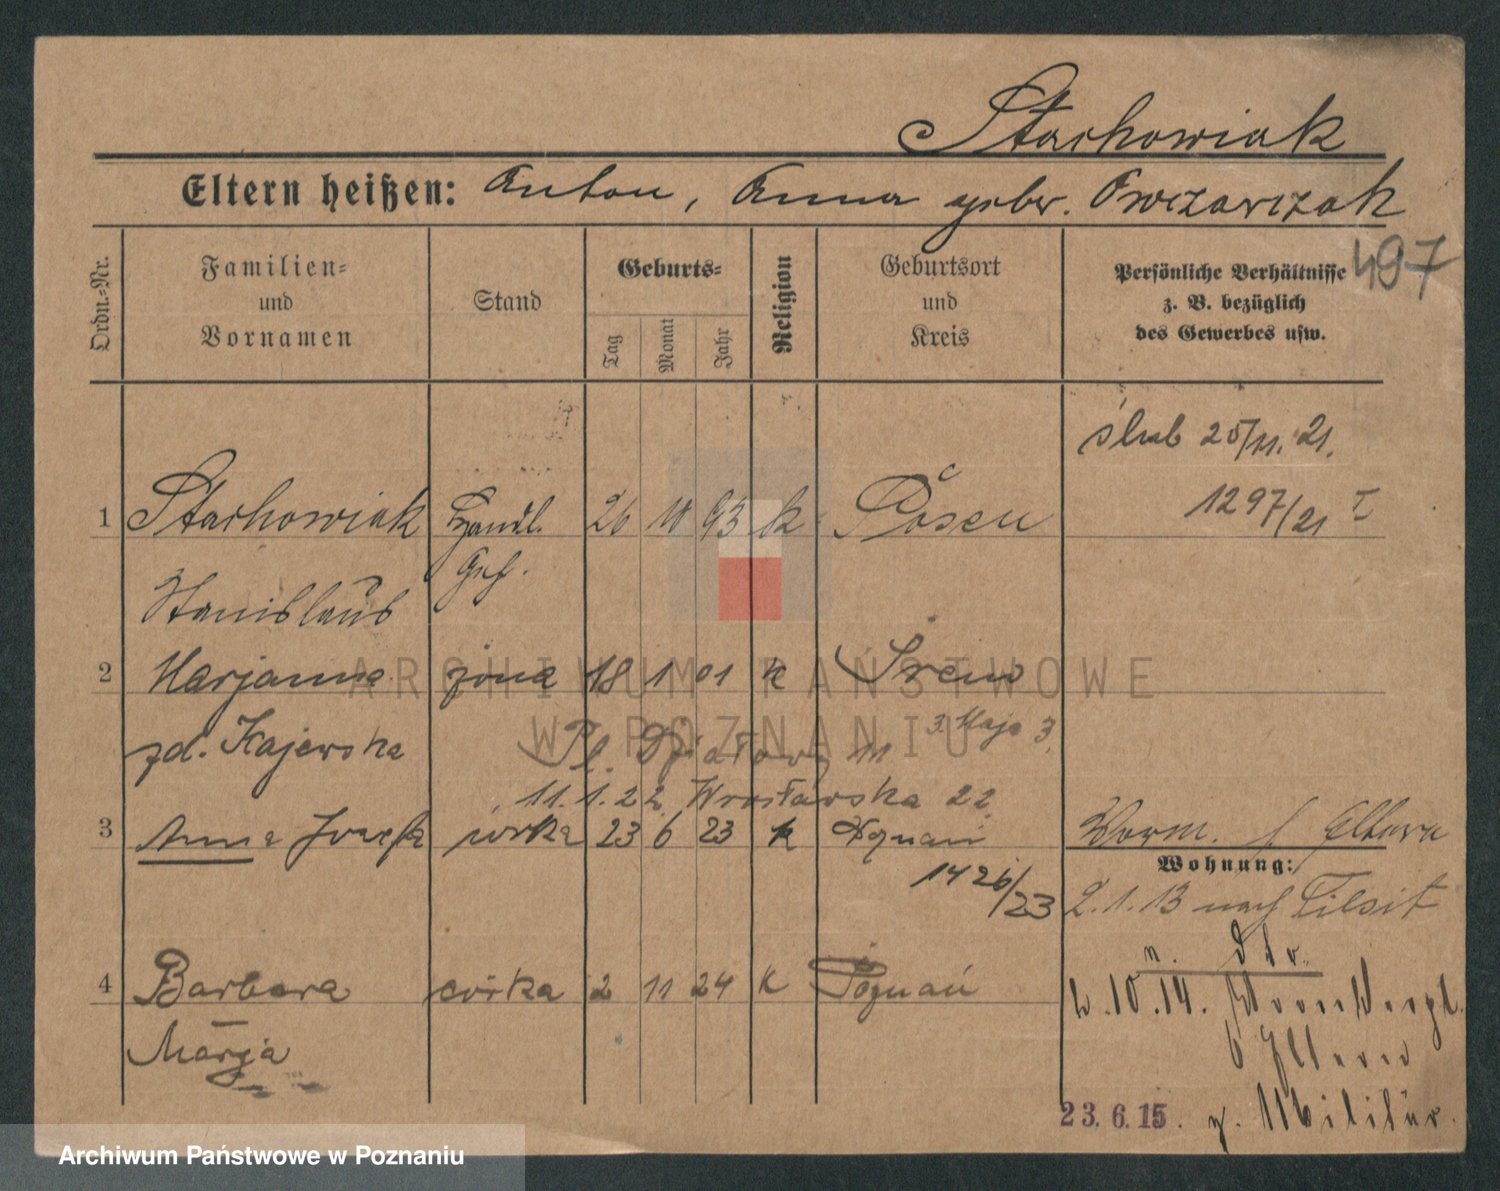 Stachowiak
Eltern heißen: Anton, Anna geber. Owczarczak
497
Ordn.-Nr.
Familien-
und
Vornamen
Stand
Geburts-
Tag
Monat
Jahr
Religion
Geburtsort
und
Kreis
Persönliche Verhältnisse
z. B. bezüglich
des Gewerbes usw.
ślub 25/11. 21.
1 Stachowiak Handl. 26 10 93 k Posen
1297/21 I
Geh.
Stanislaus
2 Marjanna żona 18 1 01 k Śrem
zd. Kajewska
Pl. Działowy 11
3. Maja 3
11.1.22 Wrocławska 22
3 Anna Józefa córka 23 6 23 k Poznań
1426/23
Worm. Eltern
Wohnung:
2.1.13 nach Tilsit
4 Barbara córka 2 11 24 k Poznań
Marja
.10.14.
b Eltern
23.6.15. z. Militär.
ARCHIWUM PAŃSTWOWE
W POZNANIU
Archiwum Państwowe w Poznaniu